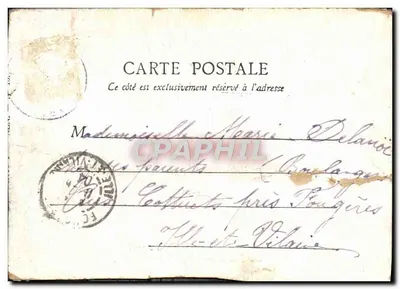 CARTE POSTALE
Ce côté est exclusivement réservé à l'adresse
Mademoiselle Marie Delanoë
ses parents Boulanger
CPAPHIL
près Fougères
Ille-et-Vilaine